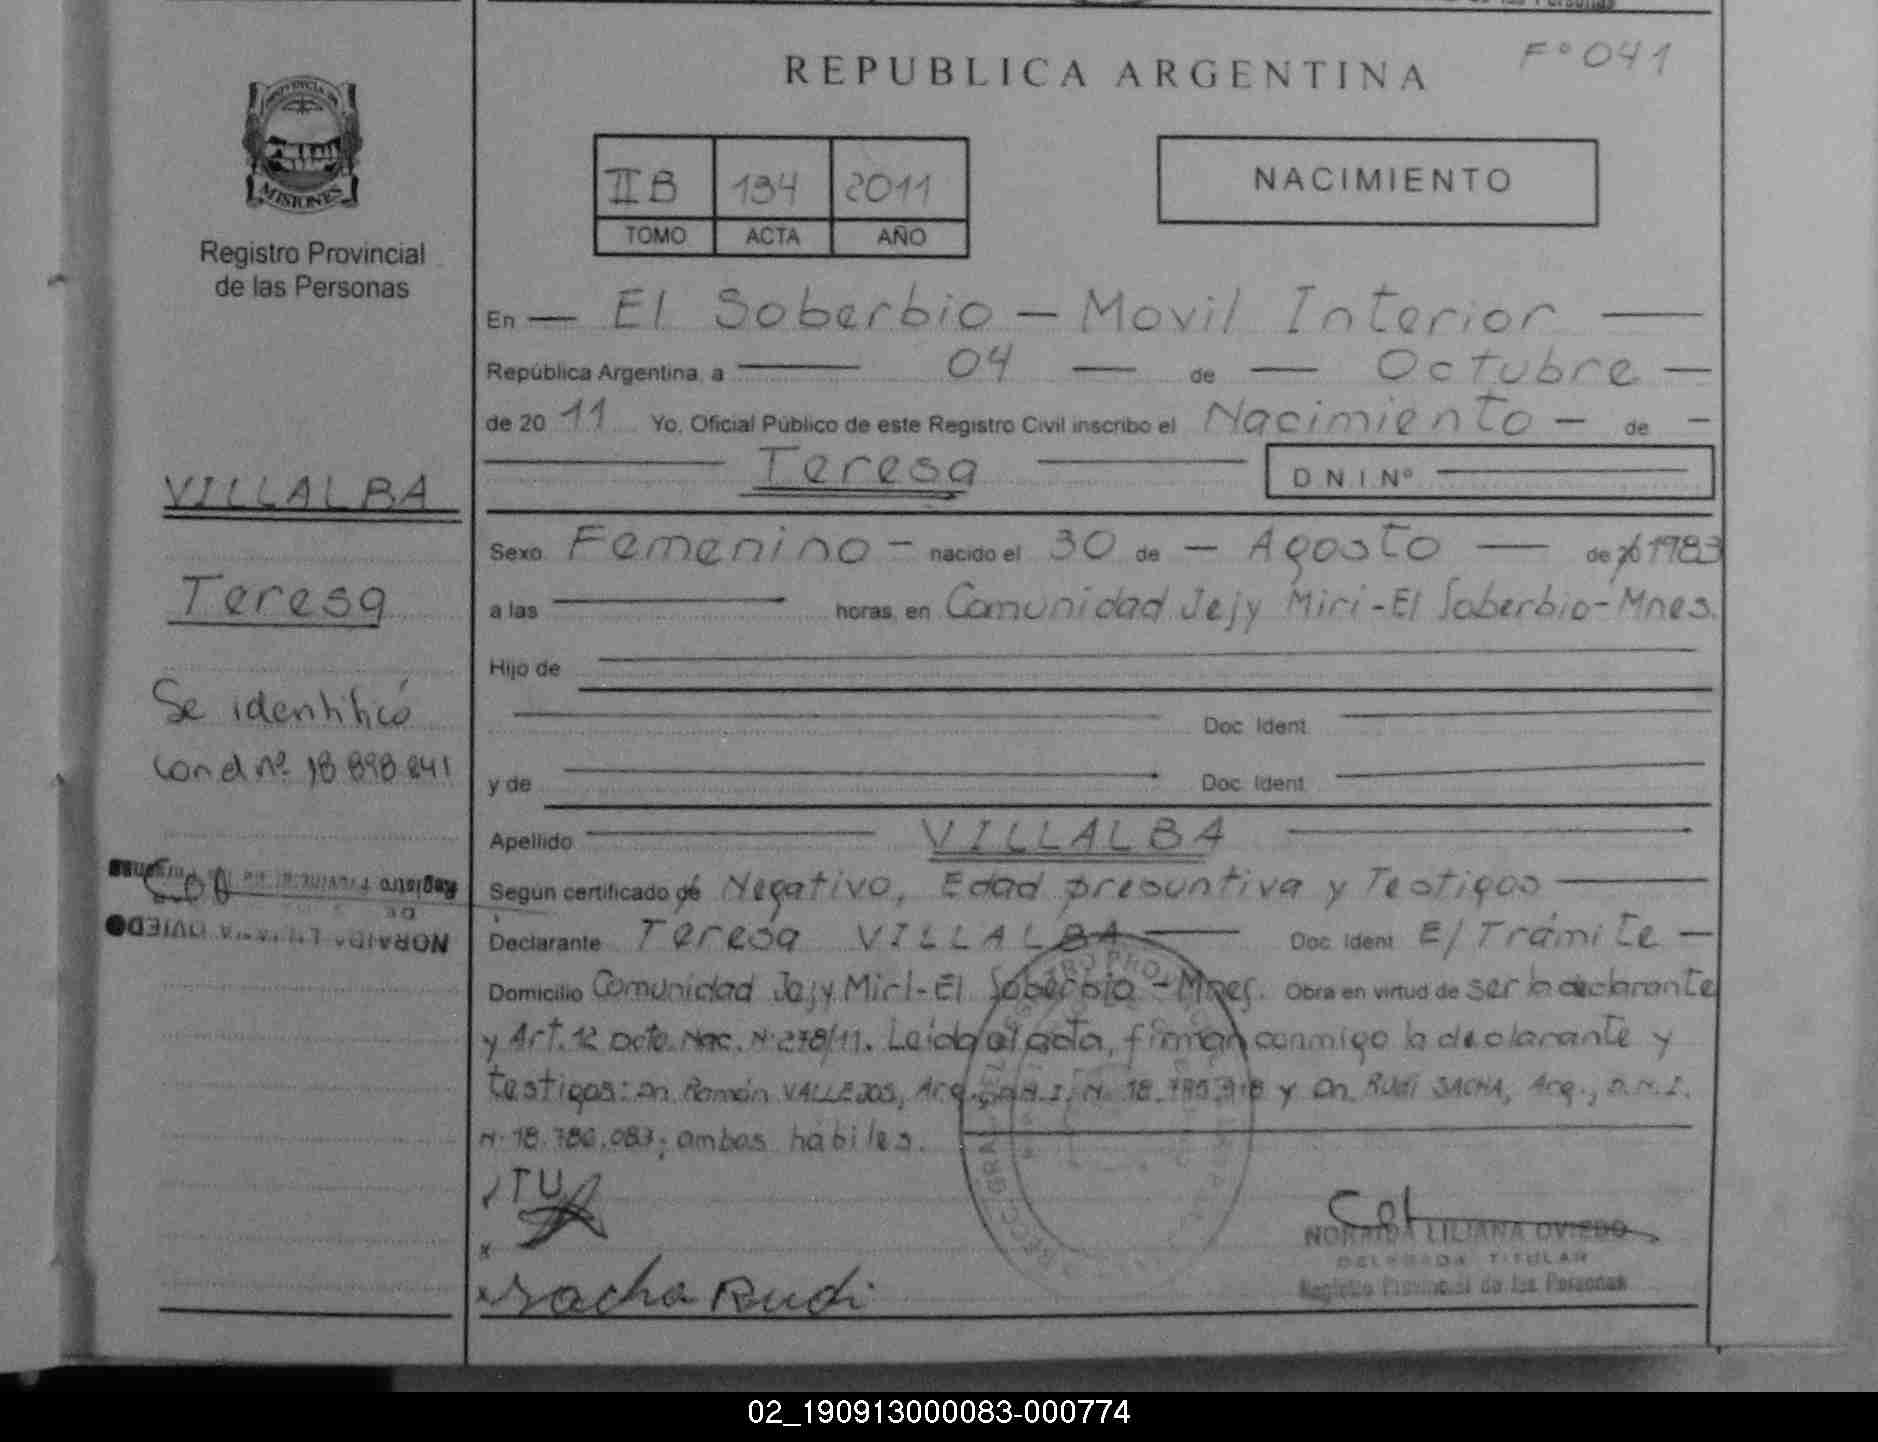 F° 041
REPUBLICA ARGENTINA
PROVINCIA DE
MISIONES
Registro Provincial
de las Personas
II B 134 2011
TOMO ACTA AÑO
NACIMIENTO
En — El Soberbio — Movil Interior —
República Argentina, a — 04 — de — Octubre —
de 20 11 Yo, Oficial Público de este Registro Civil inscribo el Nacimiento — de —
— Teresa — D N I Nº —
VILLALBA
Teresa
Se identificó
con d nº
Sexo Femenino — nacido el 30 de — Agosto — de 1983
a las — horas, en Comunidad Jejy Miri - El Soberbio - Mnes.
Hijo de —
— Doc. Ident. —
y de — Doc. Ident. —
Apellido — VILLALBA —
Según certificado de Negativo, Edad presuntiva y Testigos —
Declarante Teresa VILLALBA — Doc. Ident. E/Trámite —
Domicilio Comunidad Jejy Miri - El Soberbio - Mnes. Obra en virtud de ser la declarante
y Art. 12 Dcto. Nac. N° 278/11. Leída el acta, firman conmigo la declarante y
testigos: Dn. Ramón VALLEJOS, Arg., D.N.I. N° y Dn. Rudi SACHA, Arg., D.N.I.
N° 18.786.083; ambos hábiles. —
TU
x
x Sacha Rudi
NORAIDA LILIANA OVIEDO
DELEGADA TITULAR
Registro Provincial de las Personas
02_190913000083-000774